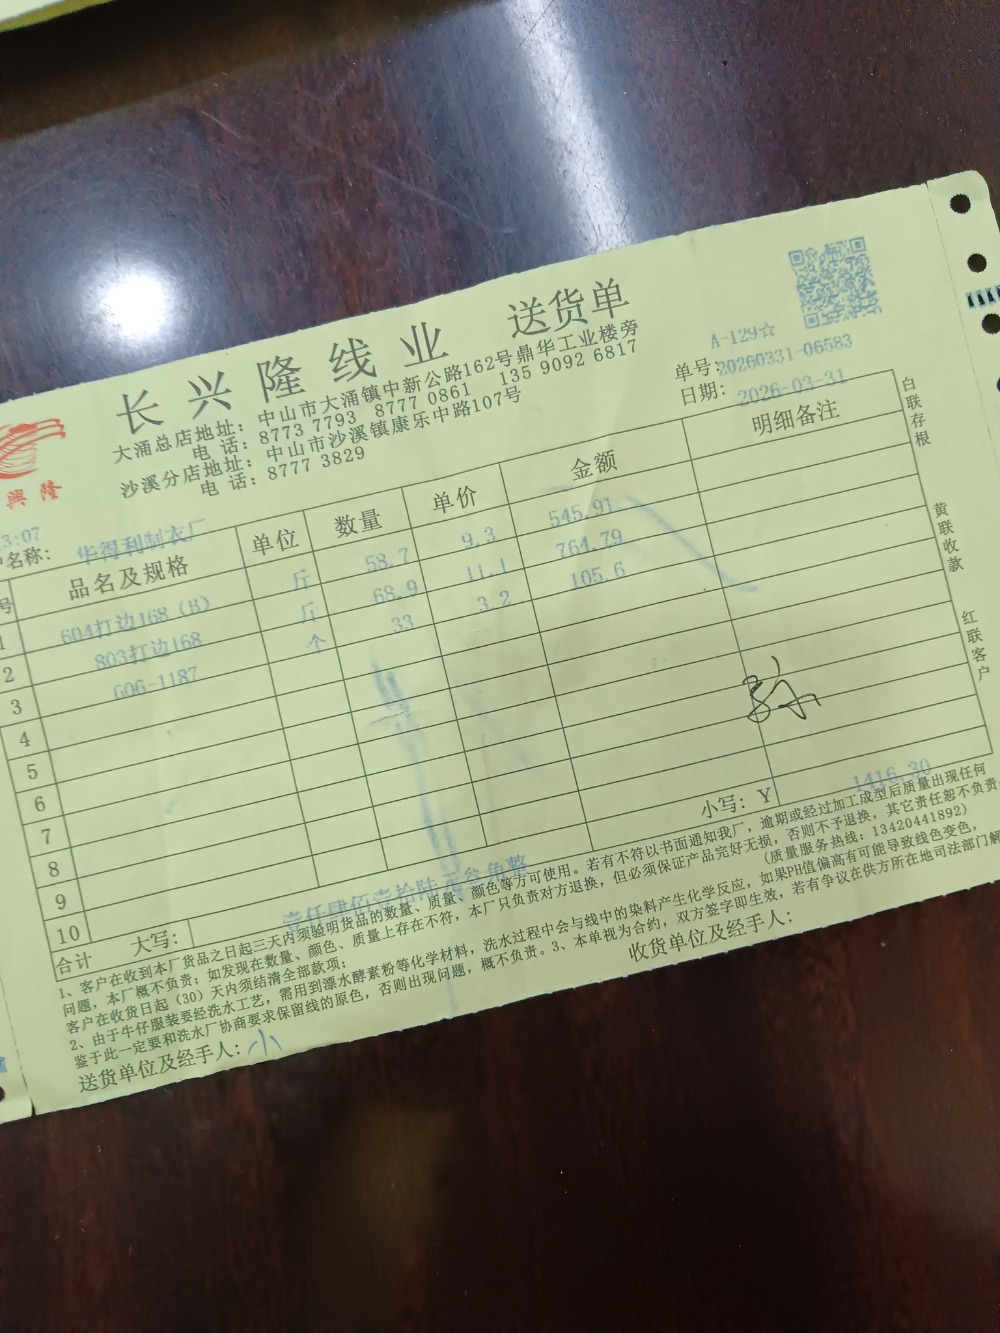 长兴隆线业 送货单
A-129☆
大涌总店地址：中山市大涌镇中新公路162号鼎华工业楼旁
电 话：8773 7793 8777 0861 135 9092 6817
沙溪分店地址：中山市沙溪镇康乐中路107号
电 话：8777 3829
單隆
单号：20260331-06583
日期：2026-03-31
3:07
户名称：华得利制衣厂
号 品名及规格 单位 数量 单价 金额 明细备注
1 604打边168（B） 斤 58.7 9.3 545.91
2 803打边168 斤 68.9 11.1 764.79
3 606-1187 个 33 3.2 105.6
4
5
6
7
8
9
10
合计 大写：壹仟肆佰壹拾陆 叁角整 小写：Y 1416.30
白联存根
黄联收款
红联客户
1、客户在收到本厂货品之日起三天内须验明货品的数量、质量、颜色等方可使用。若有不符以书面通知我厂，逾期或经过加工成型后质量出现任何
问题，本厂概不负责；如发现在数量、颜色、质量上存在不符，本厂只负责对方退换，但必须保证产品完好无损，否则不予退换，其它责任恕不负责；
客户在收货日起（30）天内须结清全部款项；（质量服务热线：13420441892）
2、由于牛仔服装要经洗水工艺，需用到漂水酵素粉等化学材料，洗水过程中会与线中的染料产生化学反应，如果PH值偏高有可能导致线色变色，
鉴于此一定要和洗水厂协商要求保留线的原色，否则出现问题，概不负责。3、本单视为合约，双方签字即生效，若有争议在供方所在地司法部门解
送货单位及经手人：小 收货单位及经手人：